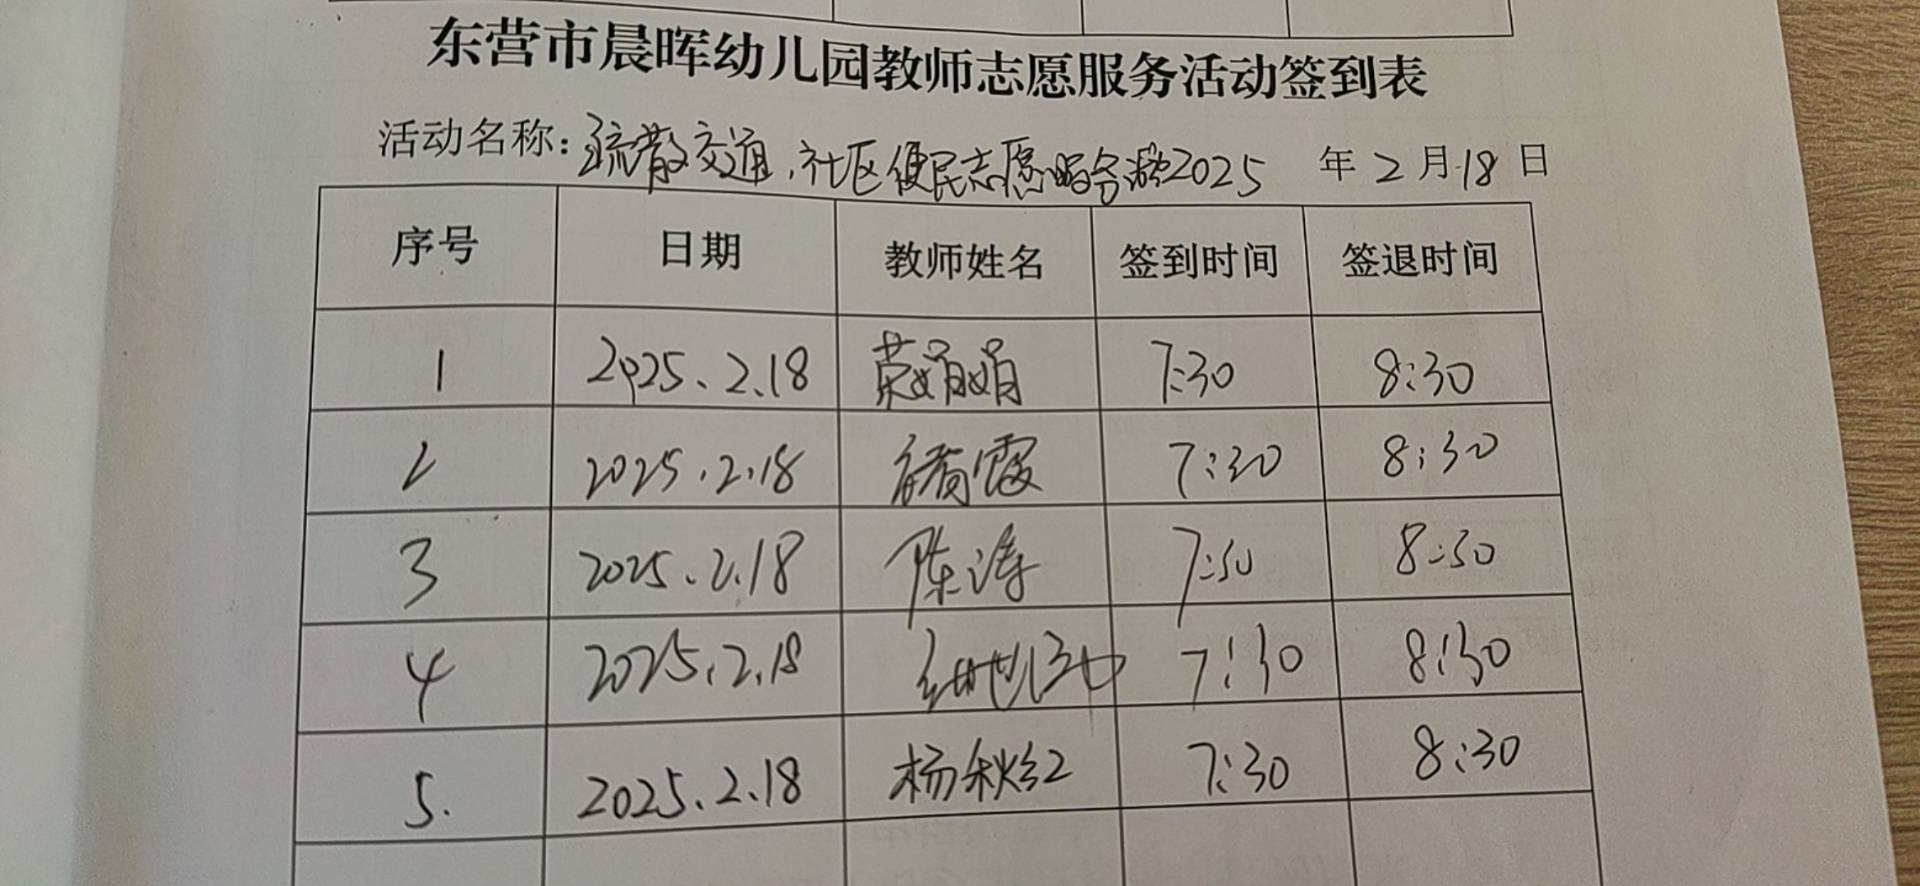 东营市晨晖幼儿园教师志愿服务活动签到表
活动名称：疏散交通，社区便民志愿服务 2025 年 2 月 18 日
序号 日期 教师姓名 签到时间 签退时间
1 2025、2、18 荣娟娟 7:30 8:30
2 2025.2.18 霞 7:30 8:30
3 2025.2.18 陈涛 7:30 8:30
4 2025.2.18 7:30 8:30
5. 2025.2.18 杨秋红 7:30 8:30